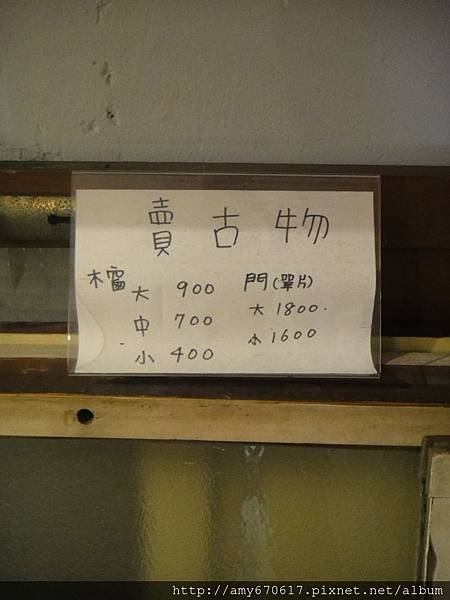 賣古物
木窗 大 900
中 700
小 400
門(單片)
大 1800.
小 1600
http://amy670617.pixnet.net/album